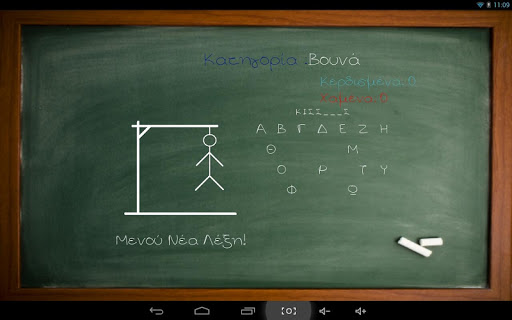 11:09
Κατηγορία :Βουνά
Κερδισμένα:0
Χαμένα:0
ΚΙΣΣ___Σ
Α Β Γ Δ Ε Ζ Η
Θ Μ
Ο Ρ Τ Υ
Φ Ω
Μενού Νέα Λέξη!